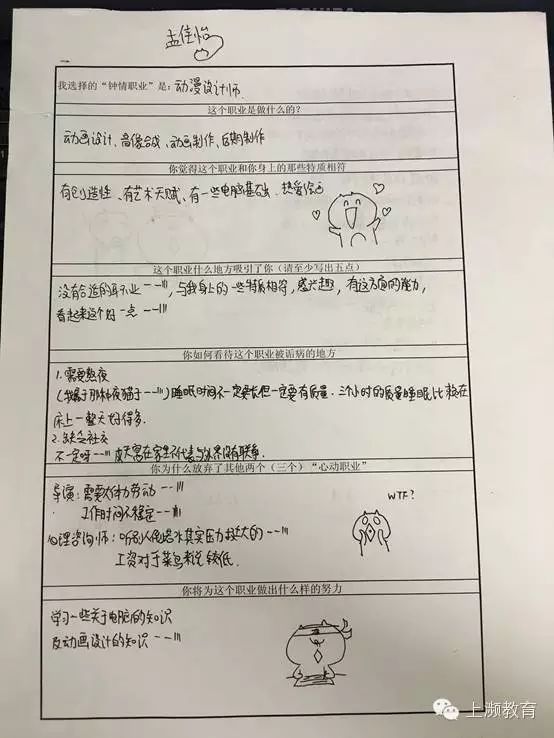 孟佳怡
我选择的“钟情职业”是：动漫设计师.
这个职业是做什么的？
动画设计、音像合成、动画制作、后期制作
你觉得这个职业和你身上的那些特质相符
有创造性、有艺术天赋、有一些电脑基础、热爱绘画
这个职业什么地方吸引了你（请至少写出五点）
没有合适的职业---|||，与我身上的一些特质相符，感兴趣，有这方面的能力，
看起来这个好一点---|||
你如何看待这个职业被诟病的地方
1.需要熬夜
(我属于那种夜猫子---|||)睡眠时间不一定要长但一定要有质量.三个小时的质量睡眠比躺在
床上一整天好得多.
2.缺乏社交
不一定呀---||| 成天窝在家里不代表与外界没有联系.
你为什么放弃了其他两个（三个）“心动职业”
导演：需要体力劳动---|||
工作时间不稳定---|||
WTF?
心理咨询师：听别人倾诉其实压力挺大的---|||
工资对于菜鸟来说较低.
你将为这个职业做出什么样的努力
学习一些关于电脑的知识
及动画设计的知识---|||
上濒教育